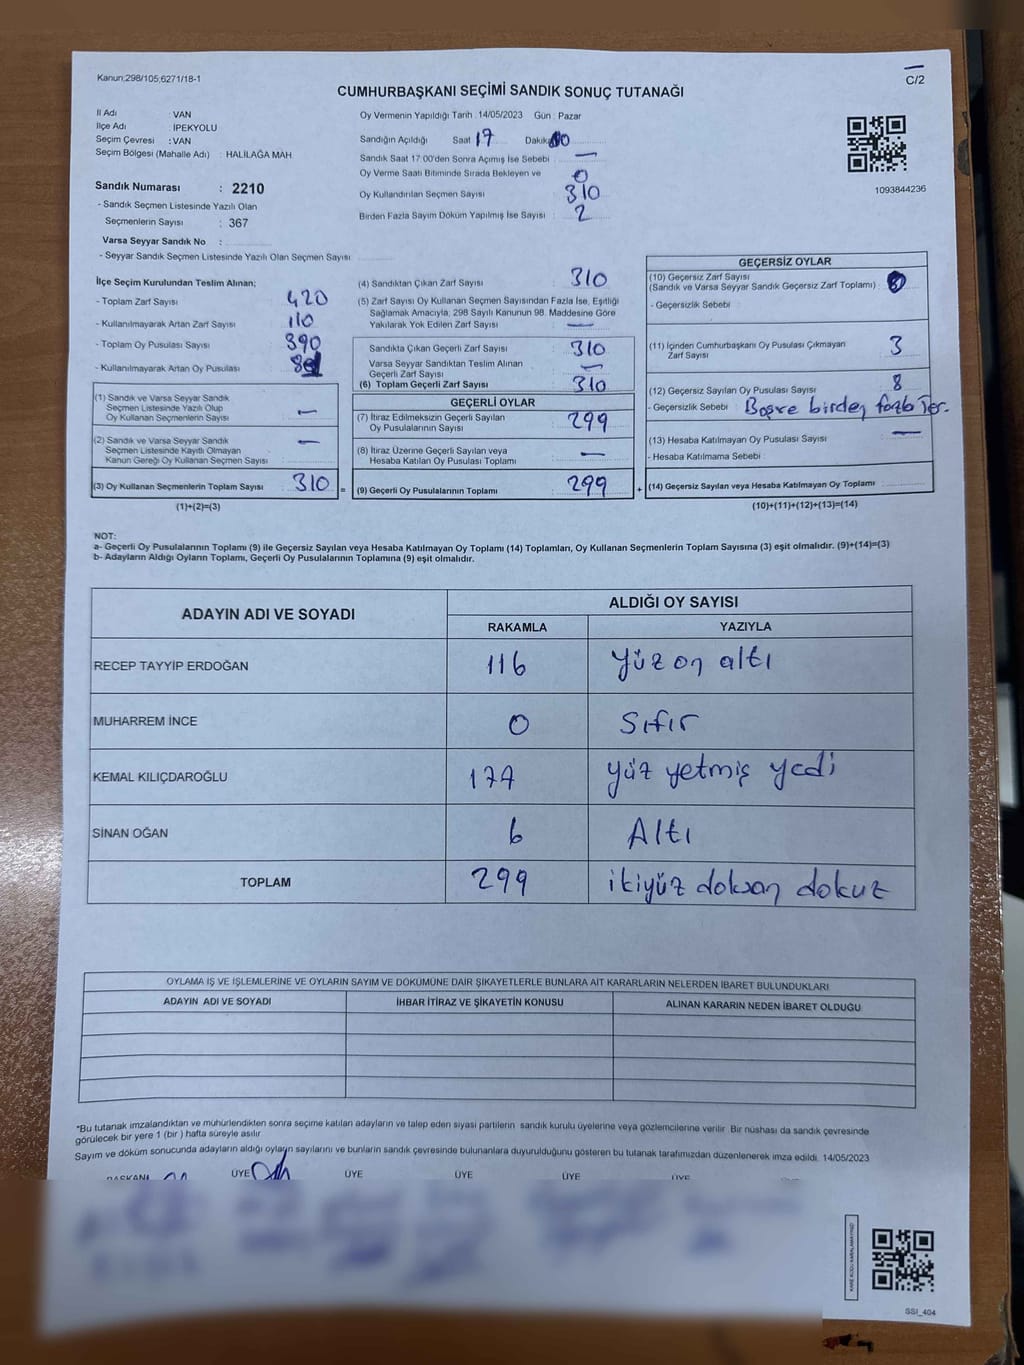 Kanun;298/105;6271/18-1
C/2
CUMHURBAŞKANI SEÇİMİ SANDIK SONUÇ TUTANAĞI
İl Adı : VAN
İlçe Adı İPEKYOLU
Seçim Çevresi : VAN
Seçim Bölgesi (Mahalle Adı) : HALİLAĞA MAH
Sandık Numarası : 2210
- Sandık Seçmen Listesinde Yazılı Olan
Seçmenlerin Sayısı : 367
Varsa Seyyar Sandık No :
- Seyyar Sandık Seçmen Listesinde Yazılı Olan Seçmen Sayısı
Oy Vermenin Yapıldığı Tarih : 14/05/2023 Gün : Pazar
Sandığın Açıldığı Saat 17 Dakika
Sandık Saat 17:00'den Sonra Açımış İse Sebebi : —
Oy Verme Saati Bitiminde Sırada Bekleyen ve 0
Oy Kullandırılan Seçmen Sayısı : 310
Birden Fazla Sayım Döküm Yapılmış İse Sayısı : 2
1093844236
İlçe Seçim Kurulundan Teslim Alınan;
- Toplam Zarf Sayısı : 420
- Kullanılmayarak Artan Zarf Sayısı : 110
- Toplam Oy Pusulası Sayısı : 390
- Kullanılmayarak Artan Oy Pusulası :
(1) Sandık ve Varsa Seyyar Sandık
Seçmen Listesinde Yazılı Olup
Oy Kullanan Seçmenlerin Sayısı : —
(2) Sandık ve Varsa Seyyar Sandık
Seçmen Listesinde Kayıtlı Olmayan
Kanun Gereği Oy Kullanan Seçmen Sayısı : —
(3) Oy Kullanan Seçmenlerin Toplam Sayısı : 310 =
(1)+(2)=(3)
(4) Sandıktan Çıkan Zarf Sayısı : 310
(5) Zarf Sayısı Oy Kullanan Seçmen Sayısından Fazla İse, Eşitliği
Sağlamak Amacıyla, 298 Sayılı Kanunun 98. Maddesine Göre
Yakılarak Yok Edilen Zarf Sayısı : —
Sandıkta Çıkan Geçerli Zarf Sayısı : 310
Varsa Seyyar Sandıktan Teslim Alınan
Geçerli Zarf Sayısı : —
(6) Toplam Geçerli Zarf Sayısı : 310
GEÇERLİ OYLAR
(7) İtiraz Edilmeksizin Geçerli Sayılan
Oy Pusulalarının Sayısı : 299
(8) İtiraz Üzerine Geçerli Sayılan veya
Hesaba Katılan Oy Pusulası Toplamı : —
(9) Geçerli Oy Pusulalarının Toplamı : 299 +
GEÇERSİZ OYLAR
(10) Geçersiz Zarf Sayısı
(Sandık ve Varsa Seyyar Sandık Geçersiz Zarf Toplamı) :
- Geçersizlik Sebebi :
(11) İçinden Cumhurbaşkanı Oy Pusulası Çıkmayan
Zarf Sayısı : 3
(12) Geçersiz Sayılan Oy Pusulası Sayısı : 8
- Geçersizlik Sebebi : birden
(13) Hesaba Katılmayan Oy Pusulası Sayısı : —
- Hesaba Katılmama Sebebi :
(14) Geçersiz Sayılan veya Hesaba Katılmayan Oy Toplamı :
(10)+(11)+(12)+(13)=(14)
NOT:
a- Geçerli Oy Pusulalarının Toplamı (9) ile Geçersiz Sayılan veya Hesaba Katılmayan Oy Toplamı (14) Toplamları, Oy Kullanan Seçmenlerin Toplam Sayısına (3) eşit olmalıdır. (9)+(14)=(3)
b- Adayların Aldığı Oyların Toplamı, Geçerli Oy Pusulalarının Toplamına (9) eşit olmalıdır.
ADAYIN ADI VE SOYADI
ALDIĞI OY SAYISI
RAKAMLA YAZIYLA
RECEP TAYYİP ERDOĞAN 116 yüz on altı
MUHARREM İNCE 0 Sıfır
KEMAL KILIÇDAROĞLU 177 yüz yetmiş yedi
SİNAN OĞAN 6 Altı
TOPLAM 299 ikiyüz doksan dokuz
OYLAMA İŞ VE İŞLEMLERİNE VE OYLARIN SAYIM VE DÖKÜMÜNE DAİR ŞİKAYETLERLE BUNLARA AİT KARARLARIN NELERDEN İBARET BULUNDUKLARI
ADAYIN ADI VE SOYADI İHBAR İTİRAZ VE ŞİKAYETİN KONUSU ALINAN KARARIN NEDEN İBARET OLDUĞU
*Bu tutanak imzalandıktan ve mühürlendikten sonra seçime katılan adayların ve talep eden siyasi partilerin sandık kurulu üyelerine veya gözlemcilerine verilir. Bir nüshası da sandık çevresinde
görülecek bir yere 1 (bir) hafta süreyle asılır
Sayım ve döküm sonucunda adayların aldığı oyların sayılarını ve bunların sandık çevresinde bulunanlara duyurulduğunu gösteren bu tutanak tarafımızdan düzenlenerek imza edildi. 14/05/2023
BAŞKAN ÜYE ÜYE ÜYE ÜYE ÜYE
KARE KODU KARALAMAYINIZ!
SSI_404